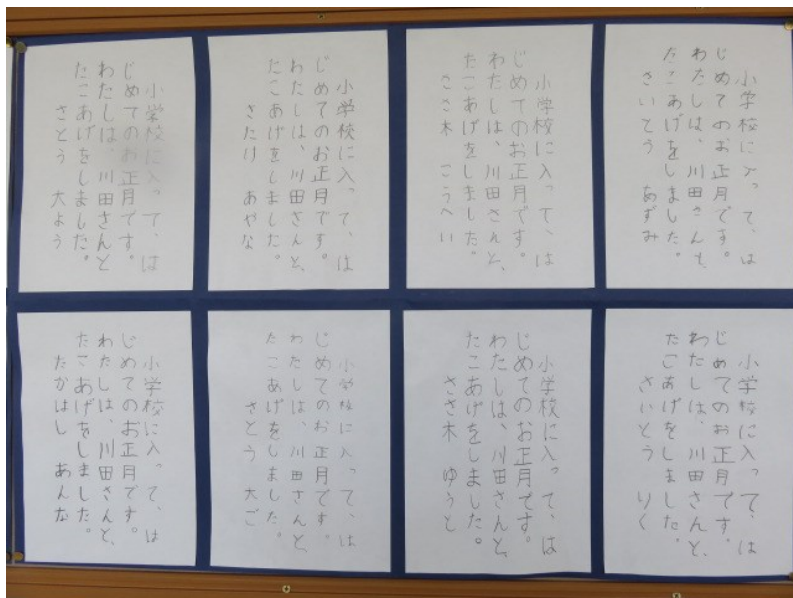 小学校に入って、は
じめてのお正月です。
わたしは、川田さんと、
たこあげをしました。
さいとう あずみ
小学校に入って、は
じめてのお正月です。
わたしは、川田さんと、
たこあげをしました。
ささ木 こうへい
小学校に入って、は
じめてのお正月です。
わたしは、川田さんと、
たこあげをしました。
さたけ あやな
小学校に入って、は
じめてのお正月です。
わたしは、川田さんと
たこあげをしました。
さとう 大よう
小学校に入って、は
じめてのお正月です。
わたしは、川田さんと、
たこあげをしました。
さいとう りく
小学校に入って、は
じめてのお正月です。
わたしは、川田さんと、
たこあげをしました。
ささ木 ゆうと
小学校に入って、は
じめてのお正月です。
わたしは、川田さんと、
たこあげをしました。
さとう 大ご
小学校に入って、は
じめてのお正月です。
わたしは、川田さんと、
たこあげをしました。
たかはし あんな